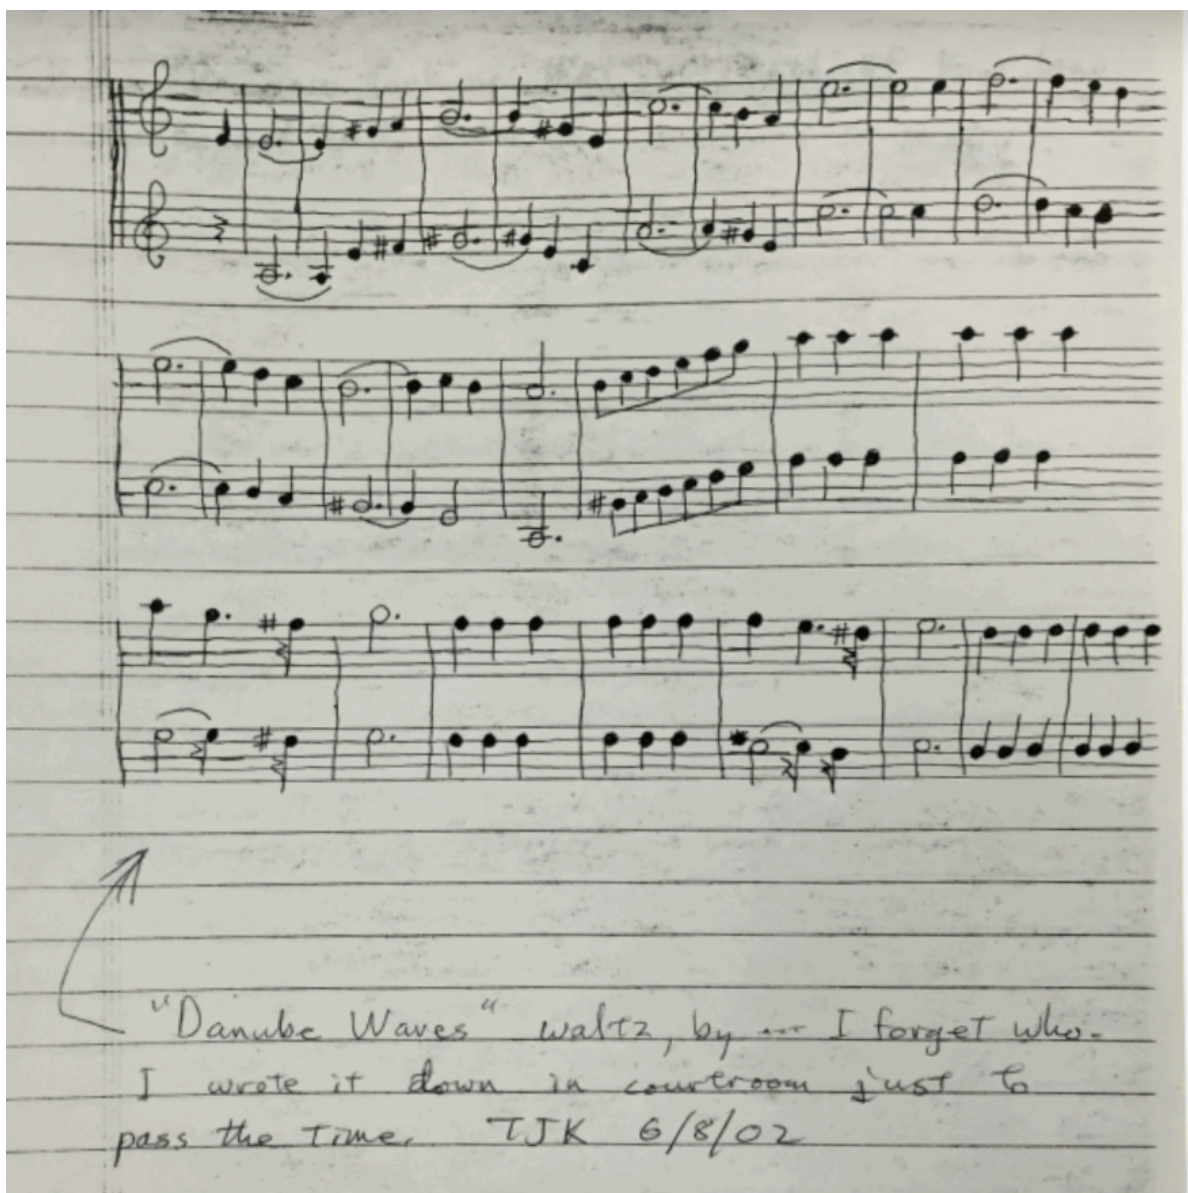 "Danube Waves" waltz, by --- I forget who.
I wrote it down in courtroom just to
pass the time. TJK 6/8/02